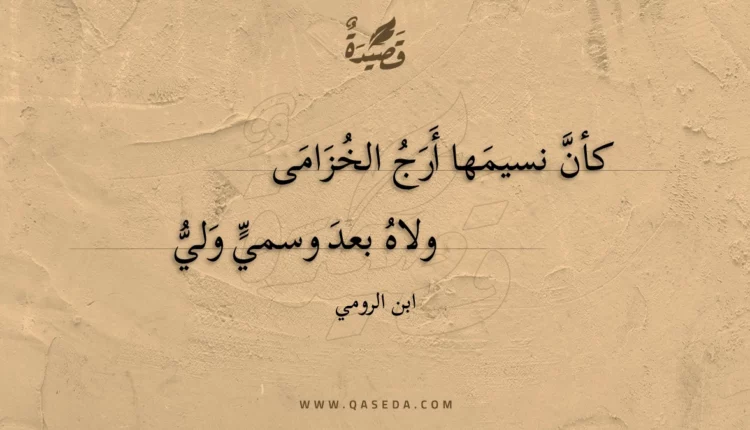 قَصِيدَةٌ
كأنَّ نسيمَها أَرَجُ الخُزَامَى
ولاهُ بعدَ وسميٍّ وَليُّ
ابن الرومي
WWW.QASEDA.COM